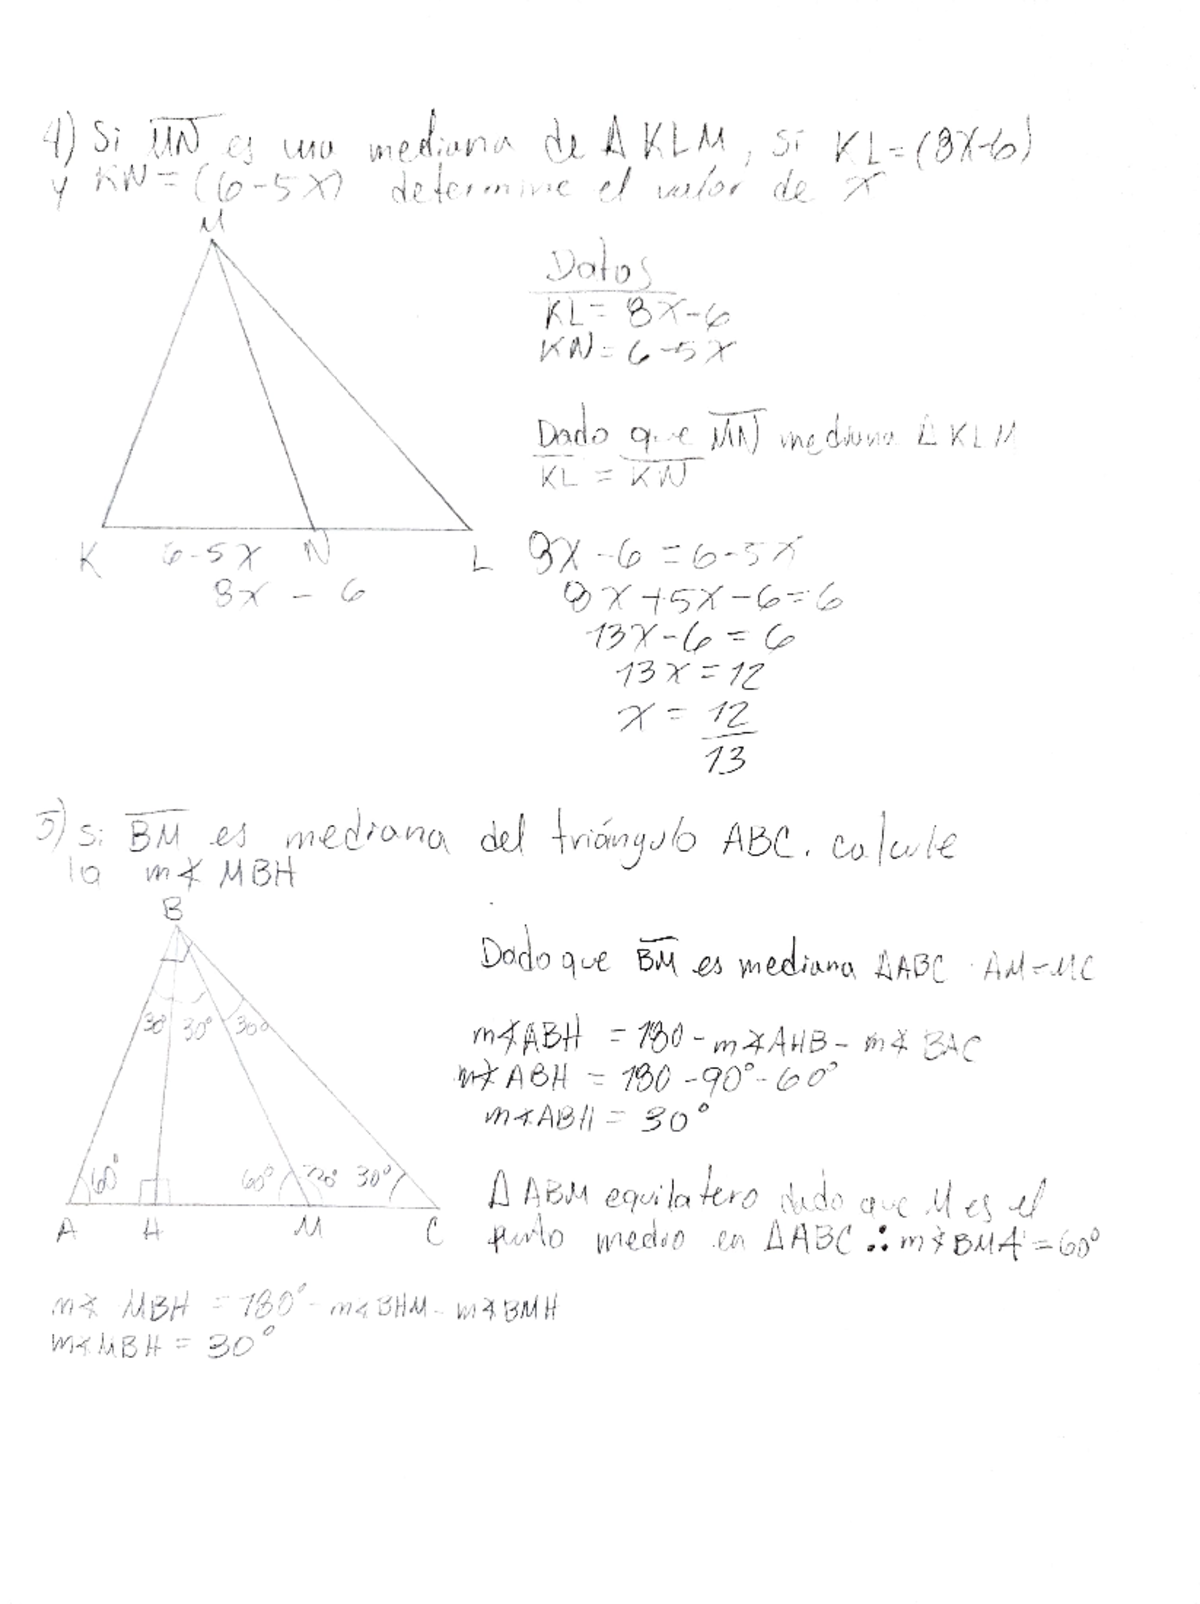 4) Si MN es una mediana de Δ KLM, si KL=(8X-6)
y KN=(6-5X) determine el valor de x
M
Datos
KL= 8X-6
KN= 6-5X
Dado que MN mediana Δ KLM
KL = KN
K 6-5X N L
8x - 6
8X-6=6-5x
8X+5X-6=6
13X-6=6
13X=12
x = 12
13
5) Si BM es mediana del triángulo ABC. calcule
la m∡ MBH
B
Dado que BM es mediana ΔABC AM=MC
30° 30° 30°
m∡ABH = 180-m∡AHB-m∡ BAC
m∡ABH = 180-90°-60°
m∡ABH = 30°
60° 60° 30°
A H M C
Δ ABM equilatero dado que M es el
punto medio en ΔABC ∴ m∡BMA=60°
m∡ MBH = 180°-m∡BHM-m∡BMH
m∡MBH = 30°